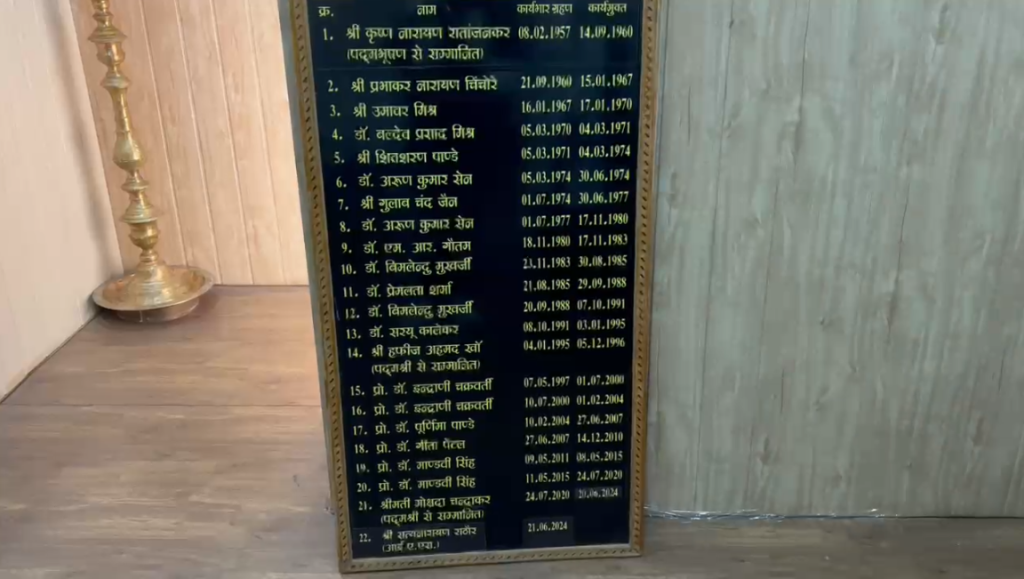 क्र. नाम कार्यभार ग्रहण कार्यमुक्त
1. श्री कृष्ण नारायण रातांजनकर 08.02.1957 14.09.1960
(पद्मभूषण से सम्मानित)
2. श्री प्रभाकर नारायण चिंचोरे 21.09.1960 15.01.1967
3. श्री उमावर मिश्र 16.01.1967 17.01.1970
4. डॉ. बल्देव प्रसाद मिश्र 05.03.1970 04.03.1971
5. श्री क्षितिशरण पाण्डे 05.03.1971 04.03.1974
6. डॉ. अरूण कुमार सेन 05.03.1974 30.06.1974
7. श्री गुलाब चंद जैन 01.07.1974 30.06.1977
8. डॉ. अरूण कुमार सेन 01.07.1977 17.11.1980
9. डॉ. एम. आर. गौतम 18.11.1980 17.11.1983
10. डॉ. बिमलेन्दु मुखर्जी 23.11.1983 30.08.1985
11. डॉ. प्रेमलता शर्मा 21.08.1985 29.09.1988
12. डॉ. बिमलेन्दु मुखर्जी 20.09.1988 07.10.1991
13. डॉ. सरयू कालेकर 08.10.1991 03.01.1995
14. श्री हफीज अहमद खाँ 04.01.1995 05.12.1996
(पद्मश्री से सम्मानित)
15. प्रो. डॉ. इन्द्राणी चक्रवर्ती 07.05.1997 01.07.2000
16. प्रो. डॉ. इन्द्राणी चक्रवर्ती 10.07.2000 01.02.2004
17. प्रो. डॉ. पूर्णिमा पाण्डे 10.02.2004 27.06.2007
18. प्रो. डॉ. गीता पेंटल 27.06.2007 14.12.2010
19. प्रो. डॉ. माण्डवी सिंह 09.05.2011 08.05.2015
20. प्रो. डॉ. माण्डवी सिंह 11.05.2015 24.07.2020
21. श्रीमती मोक्षदा चन्द्राकर 24.07.2020 20.06.2024
(पद्मश्री से सम्मानित)
22. श्री सत्यनारायण राठौर 21.06.2024
(आई.ए.एस.)